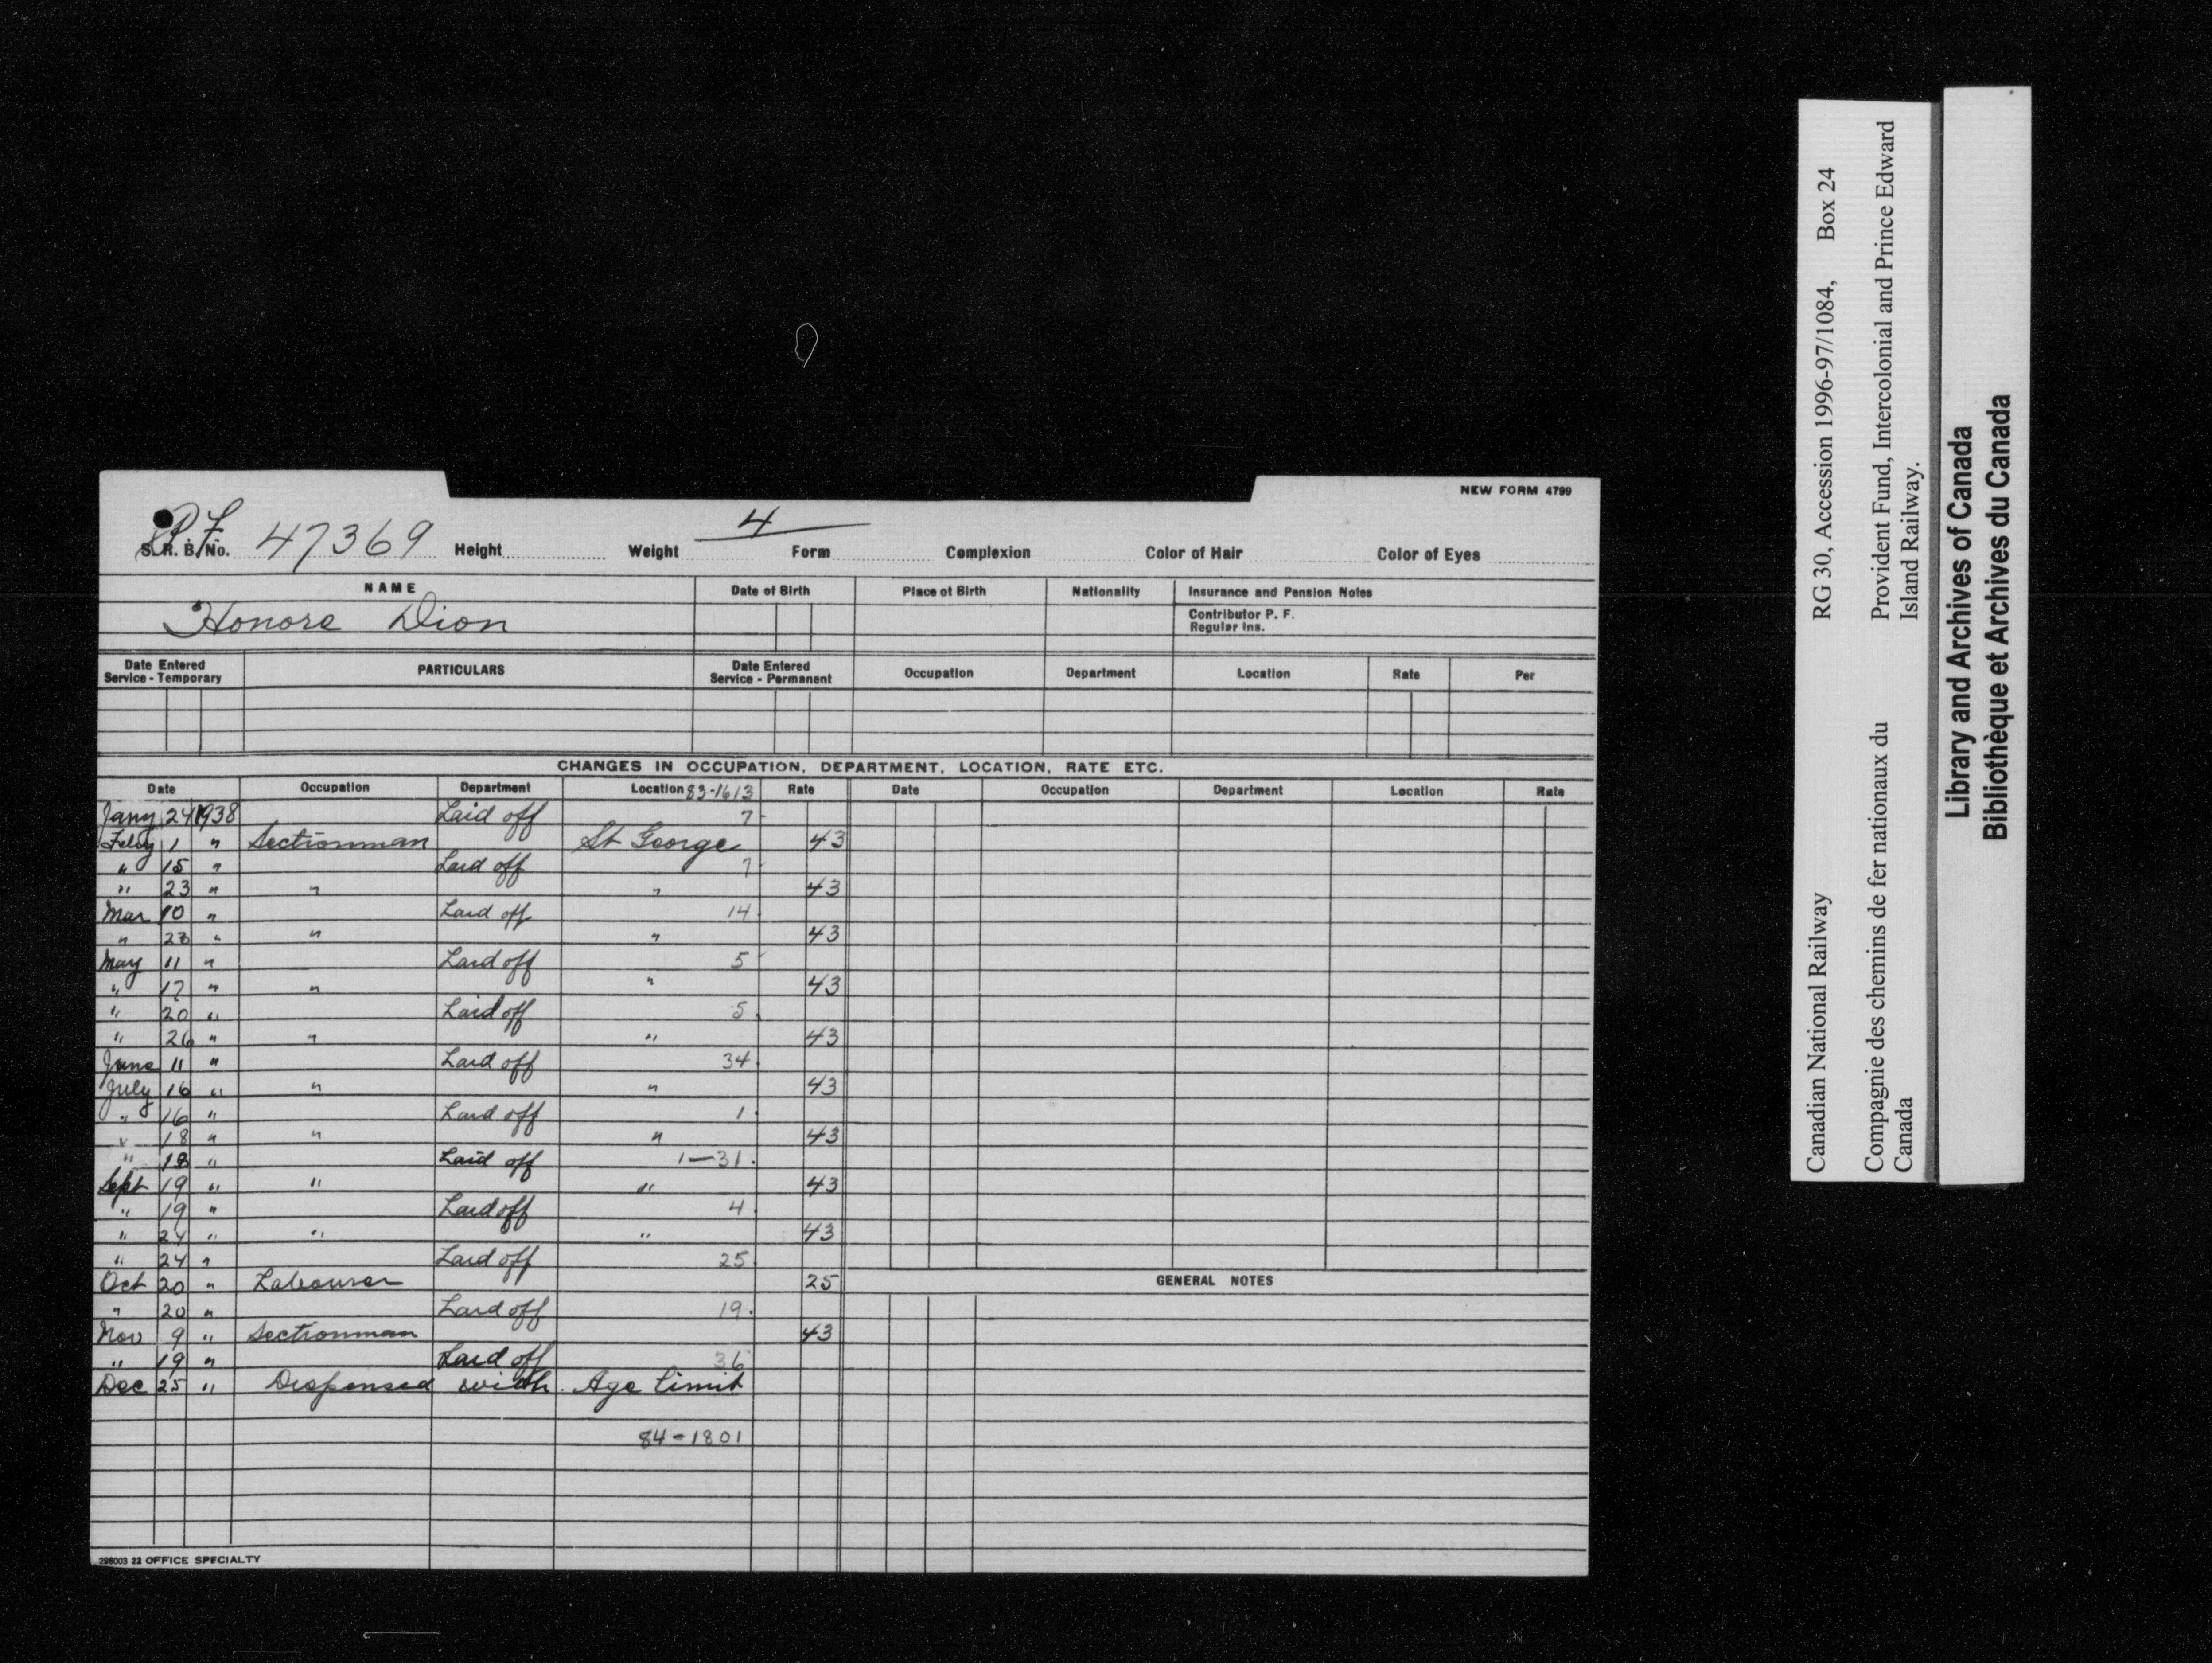 NEW FORM 4799
P.F.
4
S. R. B. No. 47369 Height Weight Form Complexion Color of Hair Color of Eyes
NAME Date of Birth Place of Birth Nationality Insurance and Pension Notes
Contributor P. F.
Regular Ins.
Honore Dion
Date Entered Service - Temporary PARTICULARS Date Entered Service - Permanent Occupation Department Location Rate Per
CHANGES IN OCCUPATION, DEPARTMENT, LOCATION, RATE ETC.
Date Occupation Department Location 83-1613 Rate Date Occupation Department Location Rate
Jany 24 1938 Laid off 7
Feby 1 " Sectionman St George 43
" 15 " Laid off 7
" 23 " " " 43
Mar 10 " Laid off 14
" 28 " " " 43
May 11 " Laid off 5
" 17 " " " 43
" 20 " Laid off 5
" 26 " " " 43
June 11 " Laid off 34
July 16 " " " 43
" 16 " Laid off 1
" 18 " " " 43
" 18 " Laid off 1-31
Sept 19 " " " 43
" 19 " Laid off 4
" 24 " " " 43
" 24 " Laid off 25
Oct 20 " Labourer 25
GENERAL NOTES
" 20 " Laid off 19
Nov 9 " Sectionman 43
" 19 " Laid off 36
Dec 25 " Dispensed with Age limit
84-1801
298003 22 OFFICE SPECIALTY
Canadian National Railway RG 30, Accession 1996-97/1084, Box 24
Compagnie des chemins de fer nationaux du Provident Fund, Intercolonial and Prince Edward
Canada Island Railway.
Library and Archives of Canada
Bibliothèque et Archives du Canada